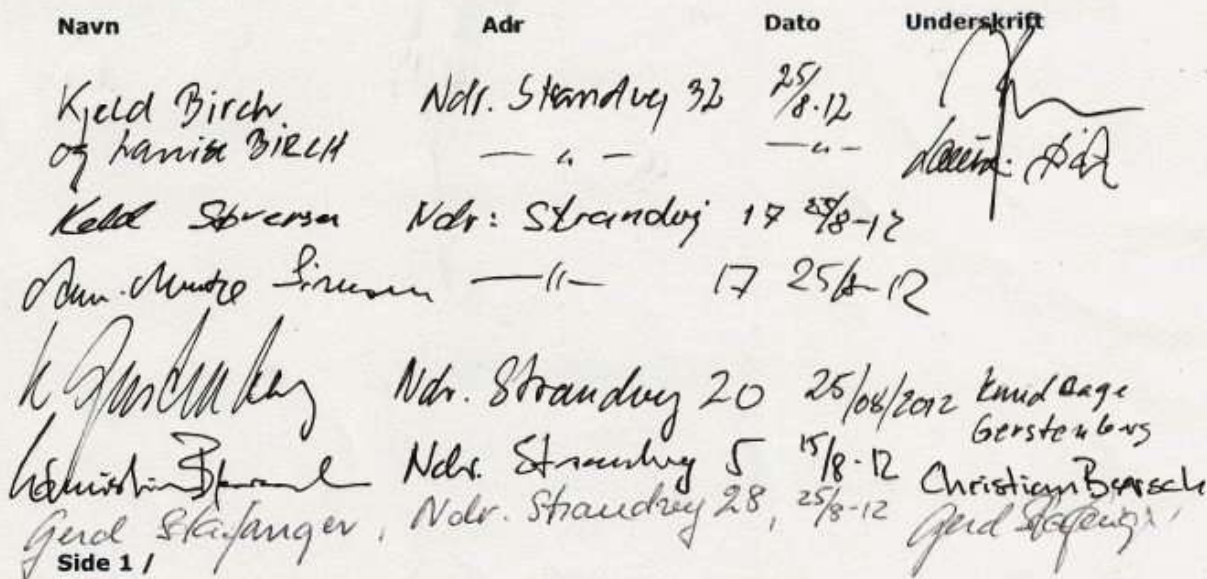 Navn Adr Dato Underskrift
Kjeld Birch. Ndr. Strandvej 32 25/8-12
og Lanise BIRCH — " — — " —
Keld Sørensen Ndr: Strandvej 17 25/8-12
— " — 17 25/8-12
Ndr. Strandvej 20 25/08/2012 Knud Aage
Gerstenberg
Ndr. Strandvej 5 15/8-12 Christian
Gerd Stafanger, Ndr. Strandvej 28, 25/8-12 Gerd
Side 1 /